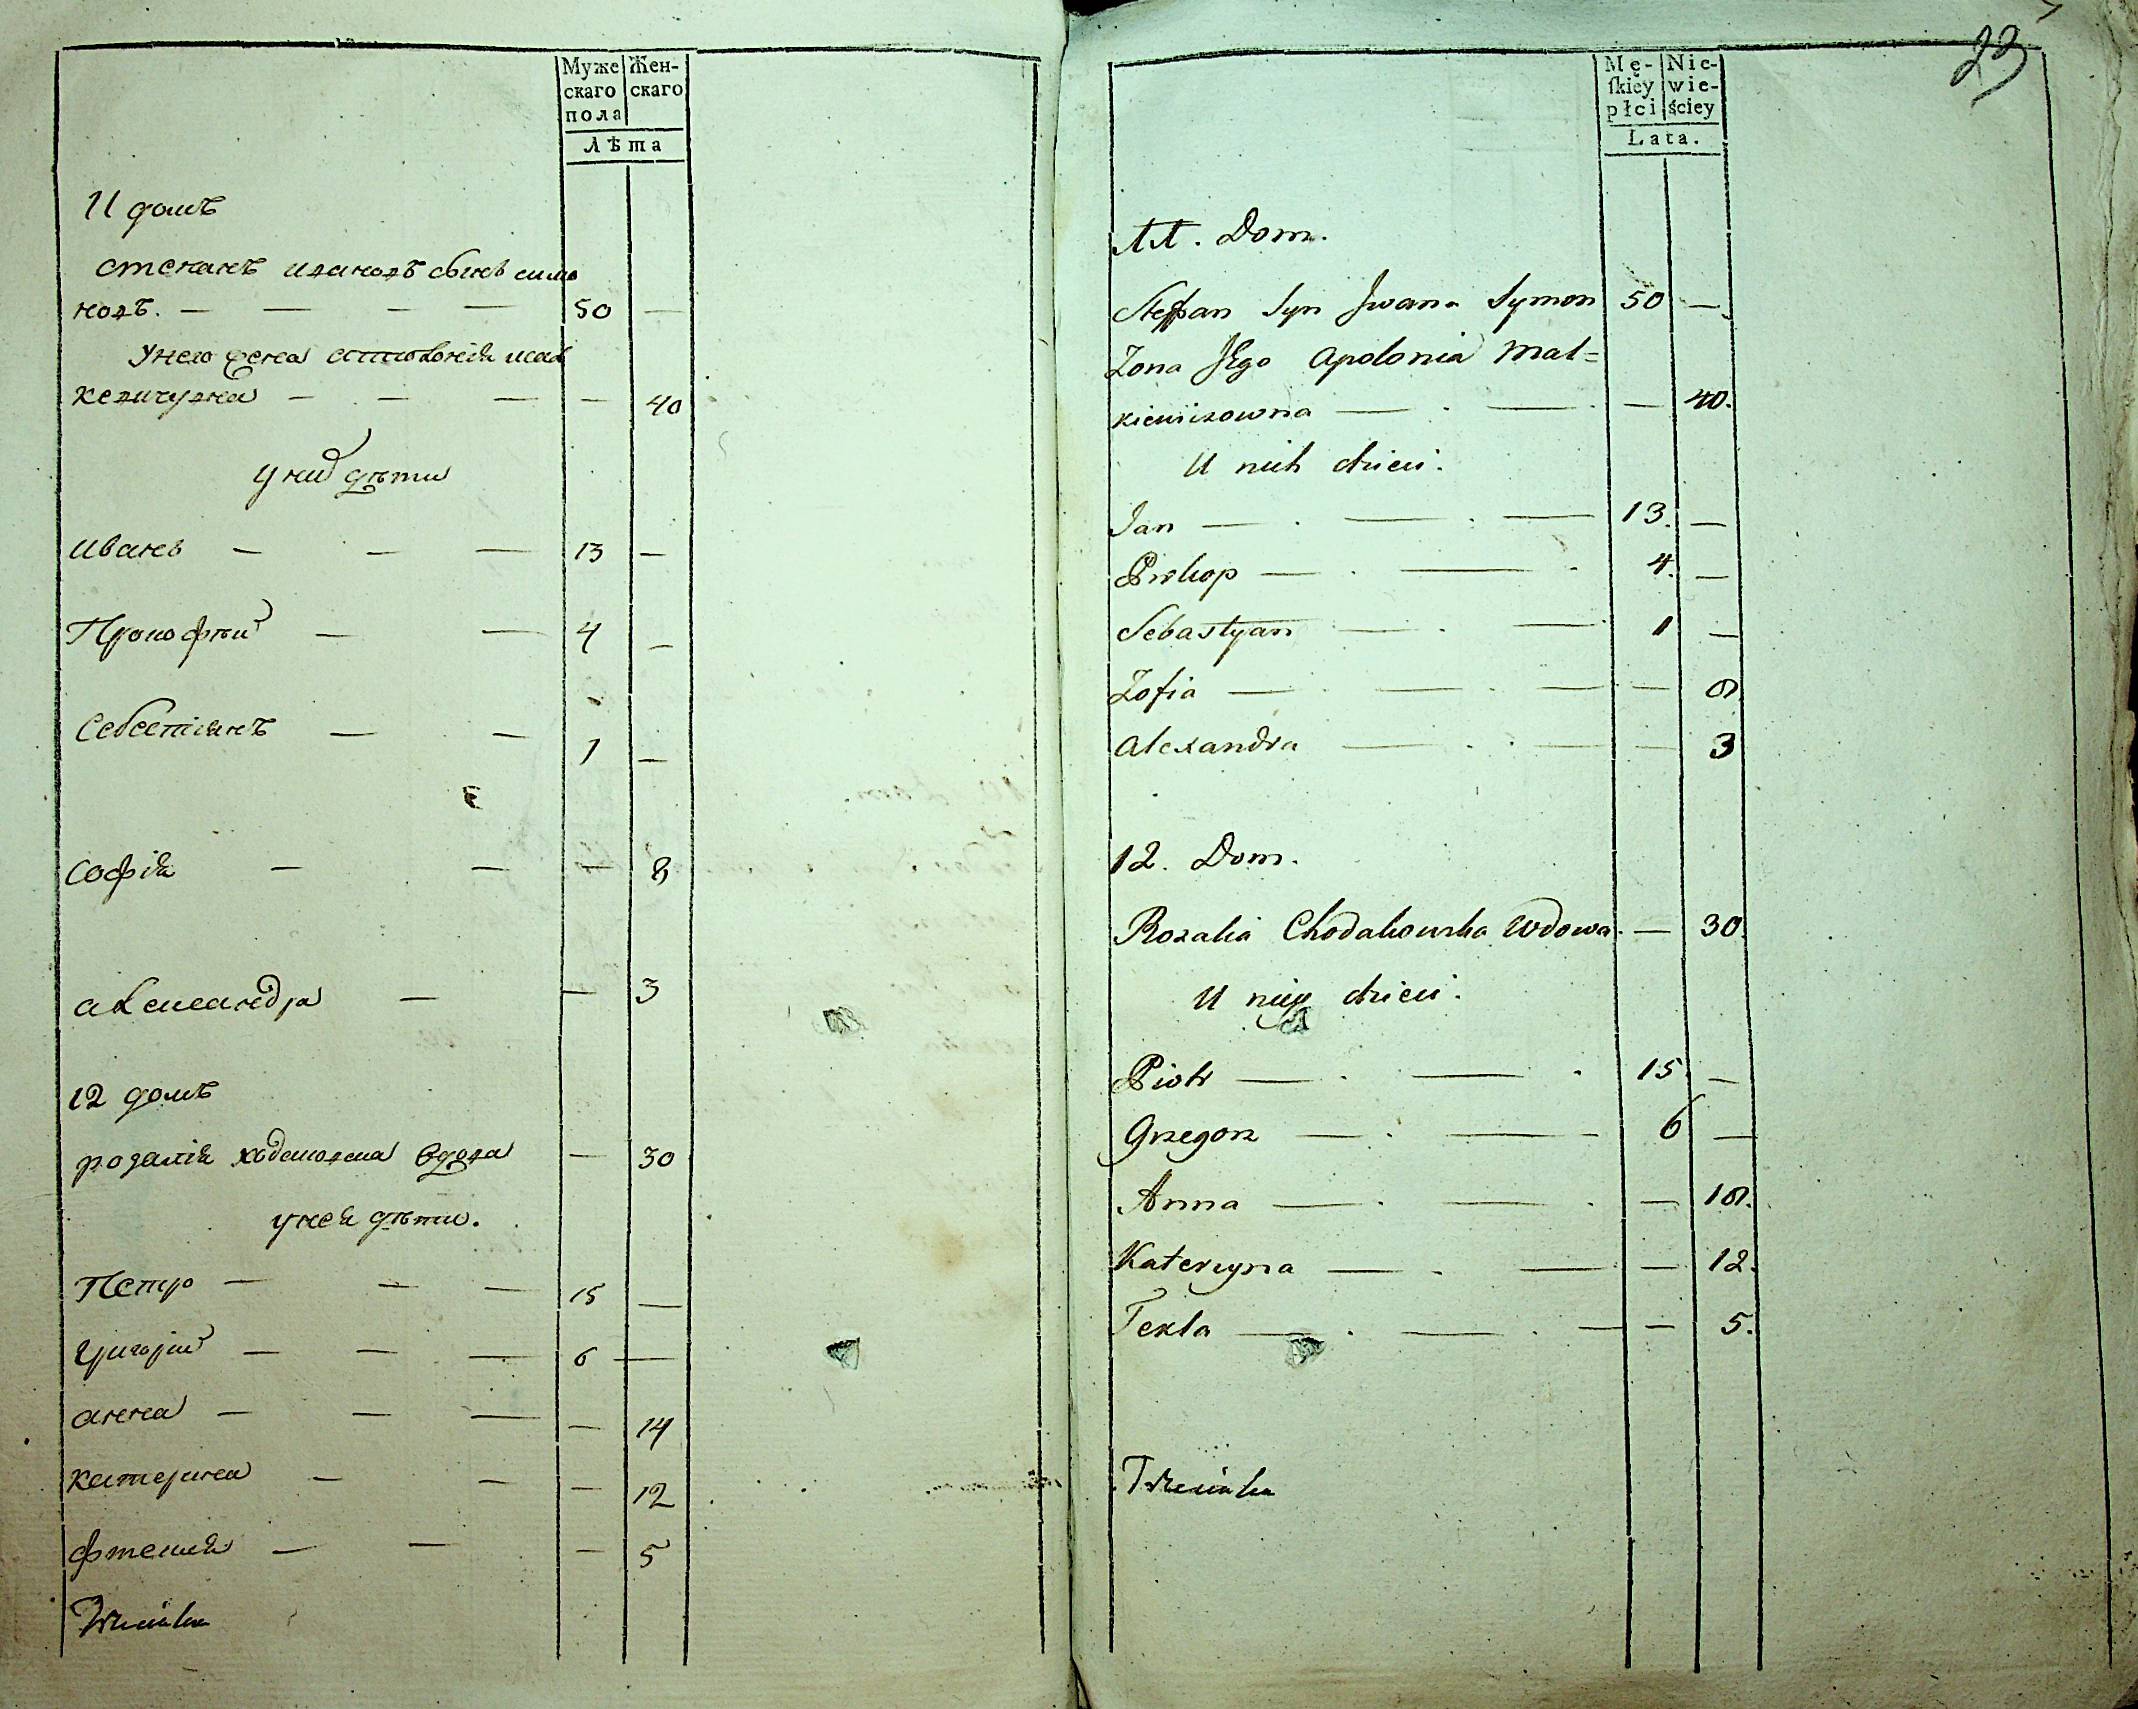 Муже
скаго
пола
Жен-
скаго
Лѣта
11 домъ
степанъ ивановъ сынъ симо
новъ. — — — — 50 —
унего жена апполонія мал
кевичувна — — — — 40
у них дѣти
иванъ — — — 13 —
Прокофѣй — — 4 —
Себестіянъ — — 1 —
софія — — — 8
александра — — 3
12 домъ
розалія ходаковска вдова — 30
унея дѣти.
Петро — — — 15 —
григорій — — — 6 —
анна — — — — 14
катерина — — — 12
фтекля — — — 5
23
Mę-
ſkiey
płci
Nie-
wie-
ściey
Lata.
11. Dom.
Steffan Syn Jwana Symon 50 —
Zona Jego Apolonia Mal=
kiewiczowna — . — . — 40.
U nich dzieci.
Jan — . — . — 13. —
Prokop — . — . 4. —
Sebastyan — . — 1 —
Zofia — . — . — — 8
Alexandra — . . — — 3
12. Dom.
Rozalia Chodakowska Wdowa. — 30.
U niey dzieci.
Piotr — . — . 15. —
Grzegorz — . — 6 —
Anna — . — . — 18.
Kateryna — . — — 12.
Tekla — . — . — — 5.